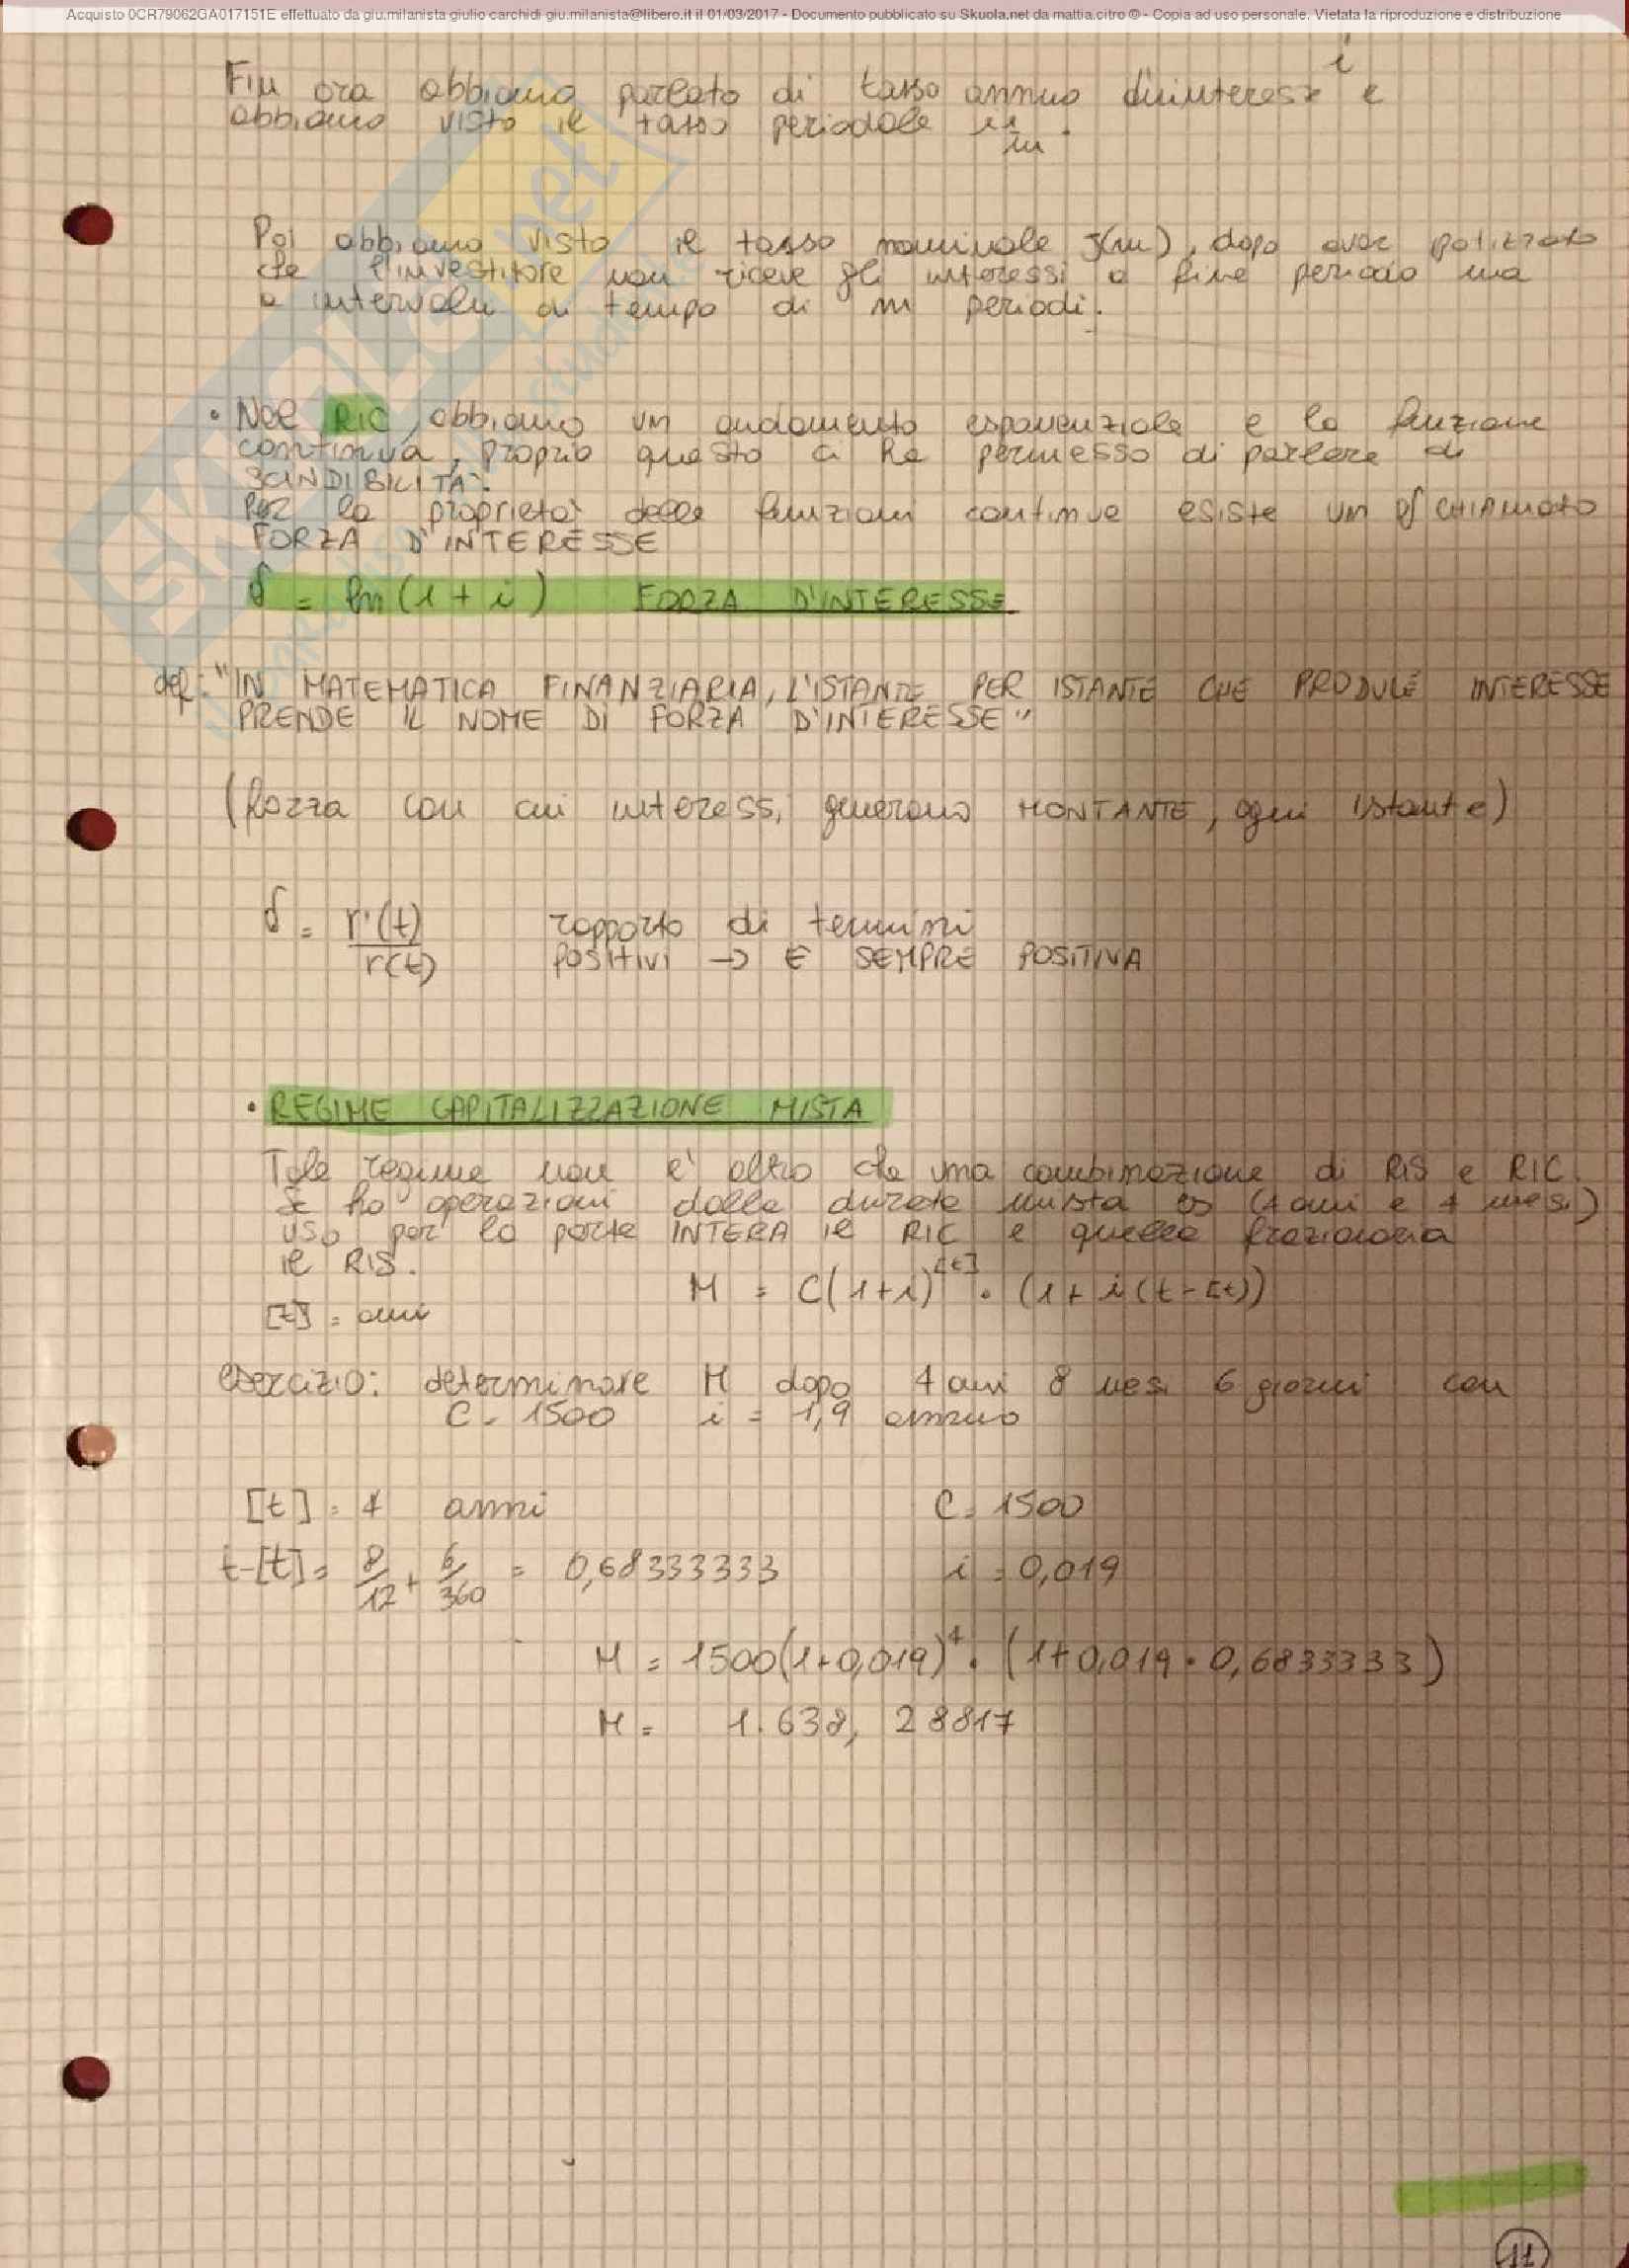 Acquisto 0CR79062GA017151E effettuato da giu.milanista giulio carchidi giu.milanista@libero.it il 01/03/2017 - Documento pubblicato su Skuola.net da mattia.citro © - Copia ad uso personale. Vietata la riproduzione e distribuzione
i
Fin ora abbiamo parlato di tasso annuo d'interesse e
abbiamo visto il tasso periodale i 1/m .
Poi abbiamo visto il tasso nominale J(m), dopo aver
che l'investitore non riceve gli interessi a fine periodo ma
a intervalli di tempo di m periodi.
• Nel RIC, abbiamo un andamento esponenziale e la funzione
continua, proprio questo ci ha permesso di parlare di
SCINDIBILITA'.
Per la proprietà delle funzioni continue esiste un δ CHIAMATO
FORZA D'INTERESSE
δ = ln(1+i) FORZA D'INTERESSE
def: "IN MATEMATICA FINANZIARIA, L'ISTANTE PER ISTANTE CHE PRODUCE INTERESSE
PRENDE IL NOME DI FORZA D'INTERESSE"
(forza con cui interessi generano MONTANTE, ogni istante)
δ = r'(t)/r(t) rapporto di termini
POSITIVI → E SEMPRE POSITIVA
• REGIME CAPITALIZZAZIONE MISTA
Tale regime non e' altro che una combinazione di RIS e RIC.
Se ho operazioni dalla durata mista es (4 anni e 4 mesi)
uso per la parte INTERA il RIC e quella frazionaria
il RIS.
M = C(1+i)^[t] · (1+i(t-[t))
[t] = anni
esercizio: determinare M dopo 4 anni 8 mesi 6 giorni con
C = 1500 i = 1,9 annuo
[t] = 4 anni C = 1500
t-[t] = 8/12 + 6/360 = 0,68333333 i = 0,019
M = 1500(1+0,019)^4 · (1+0,019·0,6833333)
M = 1.638,28817
11